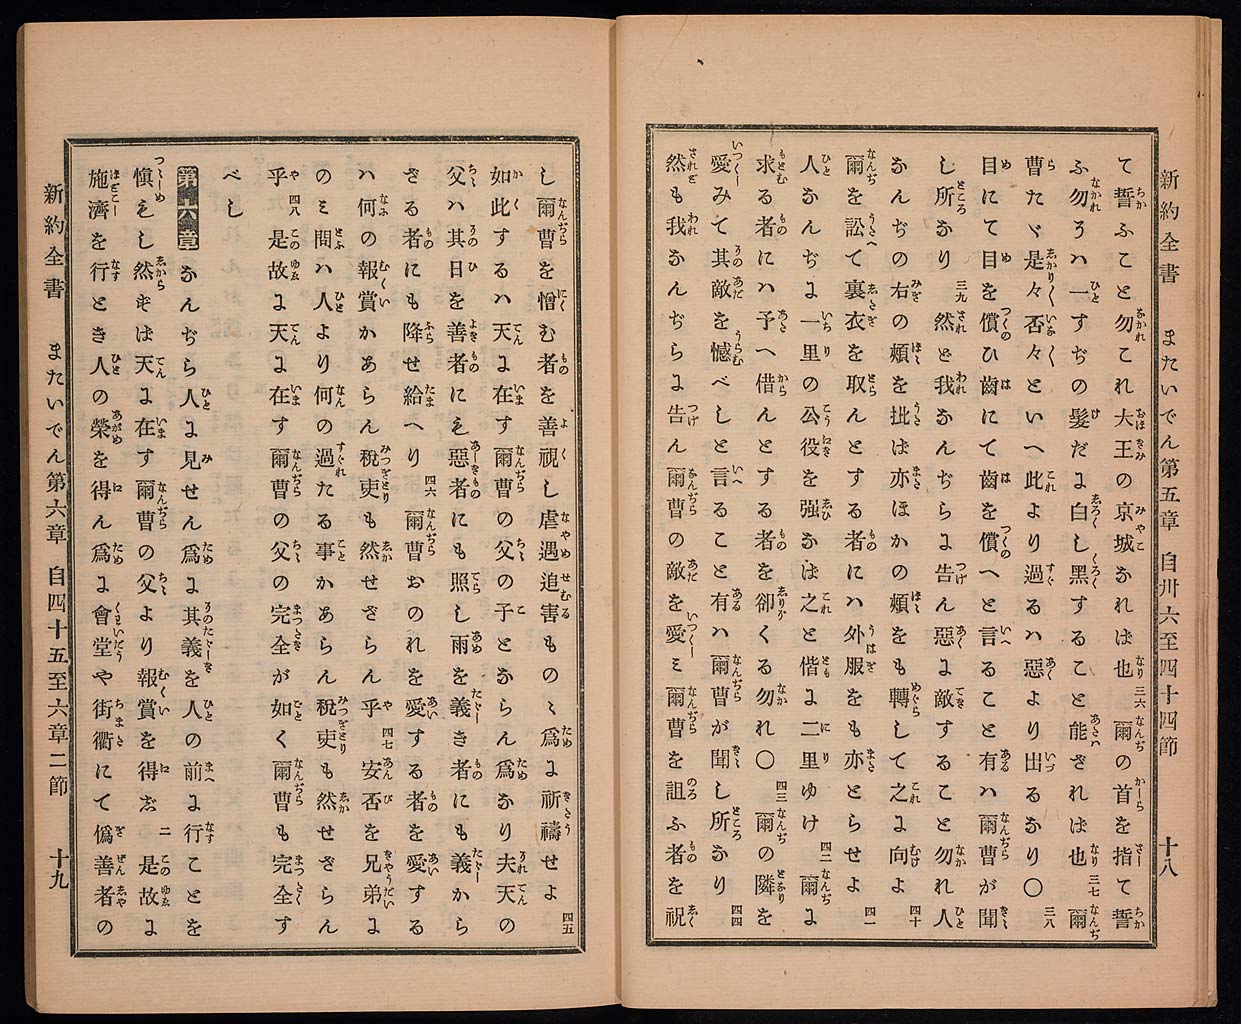 新約全書　またいでん第五章　自卅六至四十四節　十八
て誓ふこと勿これ大王の京城なれば也 三六 爾の首を指て誓
ふ勿そハ一すぢの髮だに白し黑すること能ざれば也 三七 爾
曹たゞ是々否々といへ此より過るハ惡より出るなり〇 三八
目にて目を償ひ齒にて齒を償へと言ること有ハ爾曹が聞
し所なり 三九 然ど我なんぢらに告ん惡に敵すること勿れ人
なんぢの右の頰を批ば亦ほかの頰をも轉して之に向よ 四十
爾を訟て裏衣を取んとする者にハ外服をも亦とらせよ 四一
人なんぢに一里の公役を強なば之と偕に二里ゆけ 四二 爾に
求る者にハ予へ借んとする者を卻くる勿れ〇 四三 爾の隣を
愛みて其敵を憾べしと言ること有ハ爾曹が聞し所なり 四四
然も我なんぢらに告ん爾曹の敵を愛ミ爾曹を詛ふ者を祝
し爾曹を憎む者を善視し虐遇追害ものゝ爲に祈禱せよ 四五
如此するハ天に在す爾曹の父の子とならん爲なり夫天の
父ハ其日を善者にも惡者にも照し雨を義き者にも義から
ざる者にも降せ給へり 四六 爾曹おのれを愛する者を愛する
ハ何の報賞かあらん稅吏も然せざらん乎 四七 安否を兄弟に
のミ問ハ人より何の過たる事かあらん稅吏も然せざらん
乎 四八 是故に天に在す爾曹の父の完全が如く爾曹も完全す
べし
第六章 なんぢら人に見せん爲に其義を人の前に行ことを
愼もし然ずば天に在す爾曹の父より報賞を得じ 二 是故に
施濟を行とき人の榮を得ん爲に會堂や街衢にて僞善者の
新約全書　またいでん第六章　自四十五至六章二節　十九